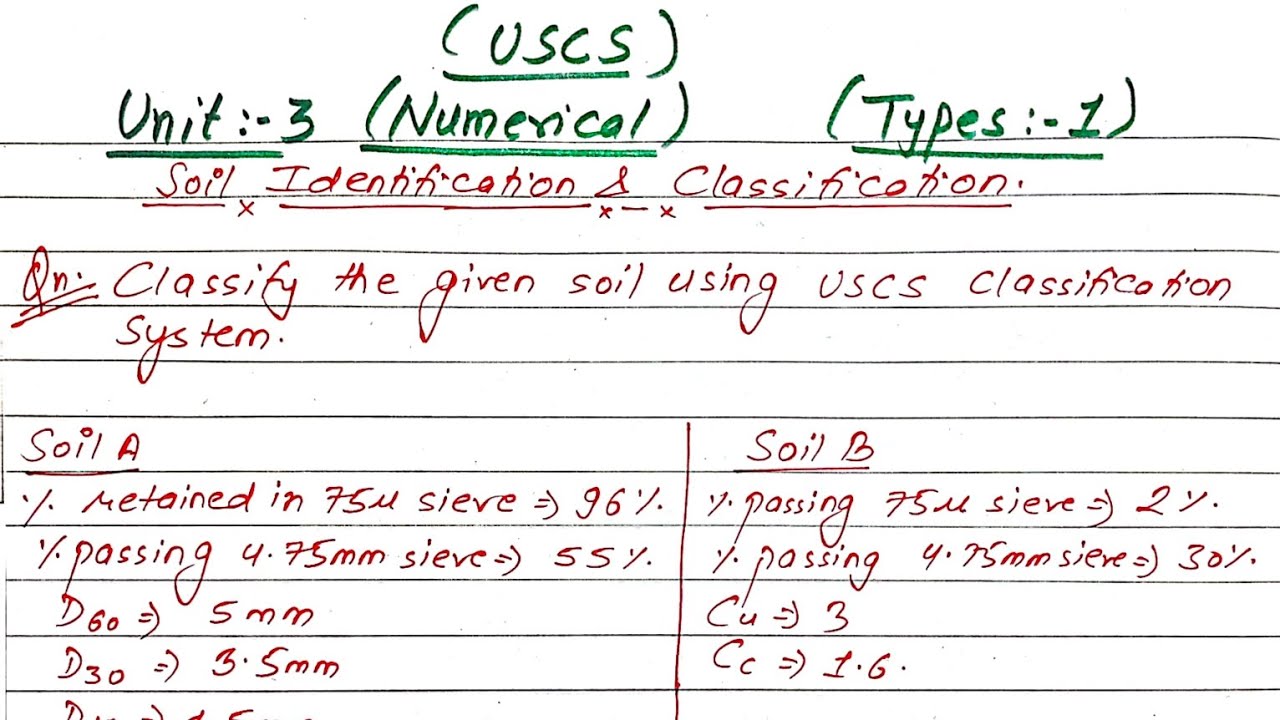 (USCS)
Unit:-3 (Numerical) (Types:-1)
Soil Identification & Classification.
Qn:- Classify the given soil using USCS Classification
System.
Soil A
% retained in 75μ sieve => 96%.
% passing 4.75mm sieve => 55%.
D60 => 5mm
D30 => 3.5mm
Soil B
% passing 75μ sieve => 2%.
% passing 4.75mm sieve => 30%.
Cu => 3
Cc => 1.6.